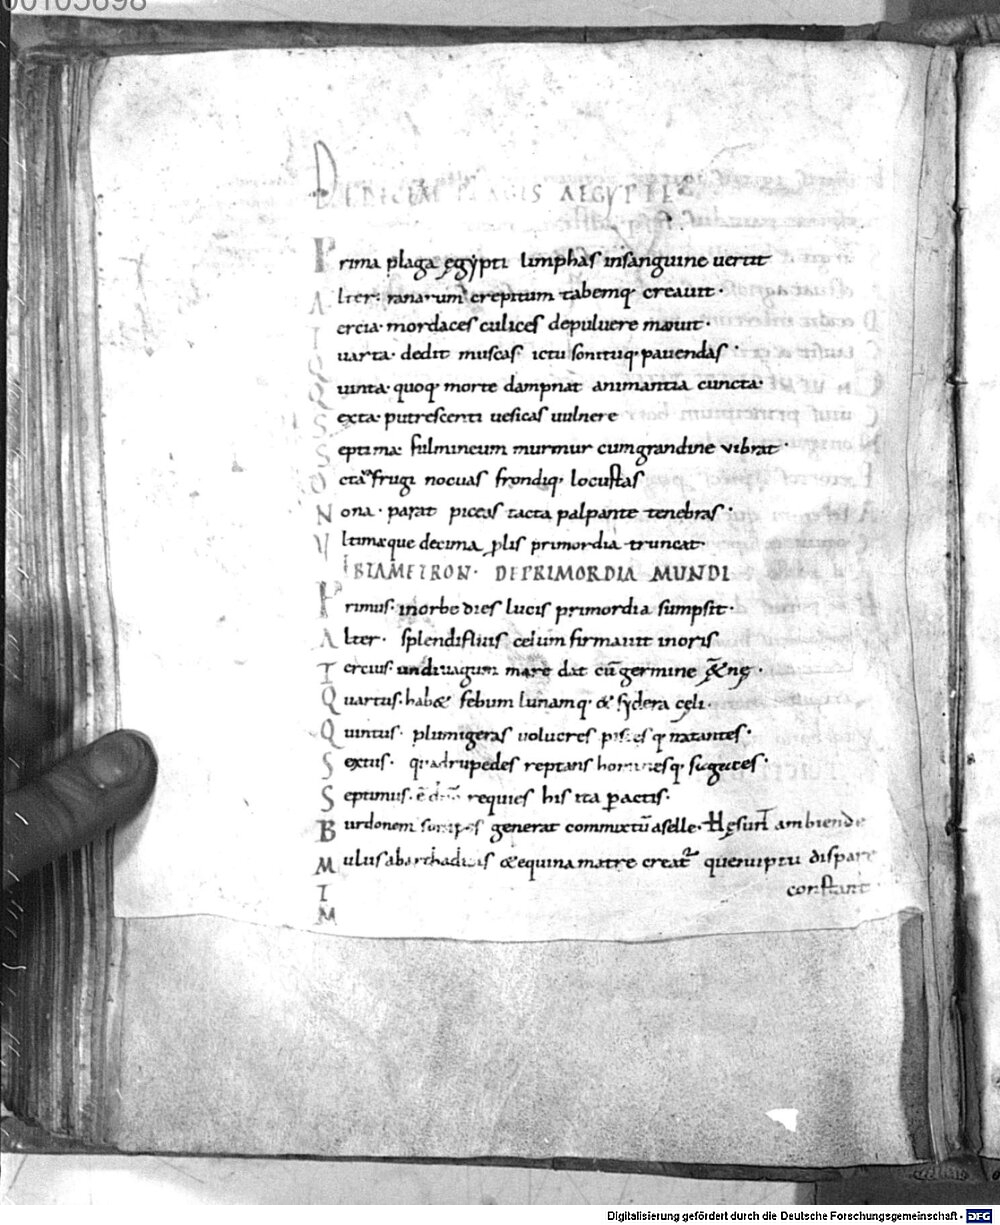 00105698
DE DECEM PLAGIS AEGYPTI
Prima plaga ęgypti limphas insanguine uertit
Alter: ranarum crepitum tabemq; creauit·
Tercia· mordaces culices depuluere mouit·
Quarta· dedit muscas ictu sonituq· pauendas·
Quinta· quoq· morte dampnat animantia cuncta·
Sexta· putrescenti uesicas uulnere
Septima fulmineum murmur cumgrandine vibrat·
Octa frugi nocuas frondiq· locustas
Nona· parat piceas tacta palpante tenebras·
Vltimaque decima plis primordia truncat·
DEPRIMORDIA MUNDI
Primus· inorbe dies lucis primordia sumpsit·
Alter· splendifluis celum firmauit inoris
Tercius· undiuagum mare dat cū germine
Quartus· hab& febum lunamq· & sydera cęli·
Quintus· plumigeras volucres pisces q natantes·
Sextus· quadrupedes reptans hominesq·
Septimus· ē requies his ita pactis·
Burdonem sonipes generat commixtū aselle· Hęsunt ambiende
Mulus &equina matre creat queruiptu dispare
I constant
M
Digitalisierung gefördert durch die Deutsche Forschungsgemeinschaft - DFG